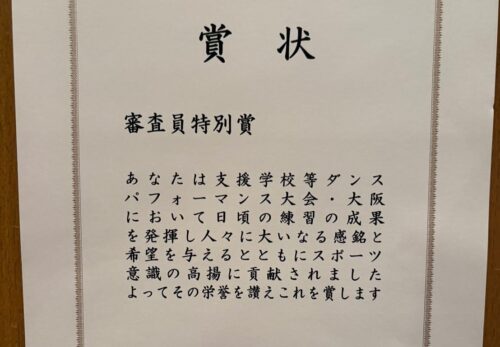 賞状
審査員特別賞
あなたは支援学校等ダンス
パフォーマンス大会・大阪
において日頃の練習の成果
を発揮し人々に大いなる感銘と
希望を与えるとともにスポーツ
意識の高揚に貢献されました
よってその栄誉を讃えこれを賞します